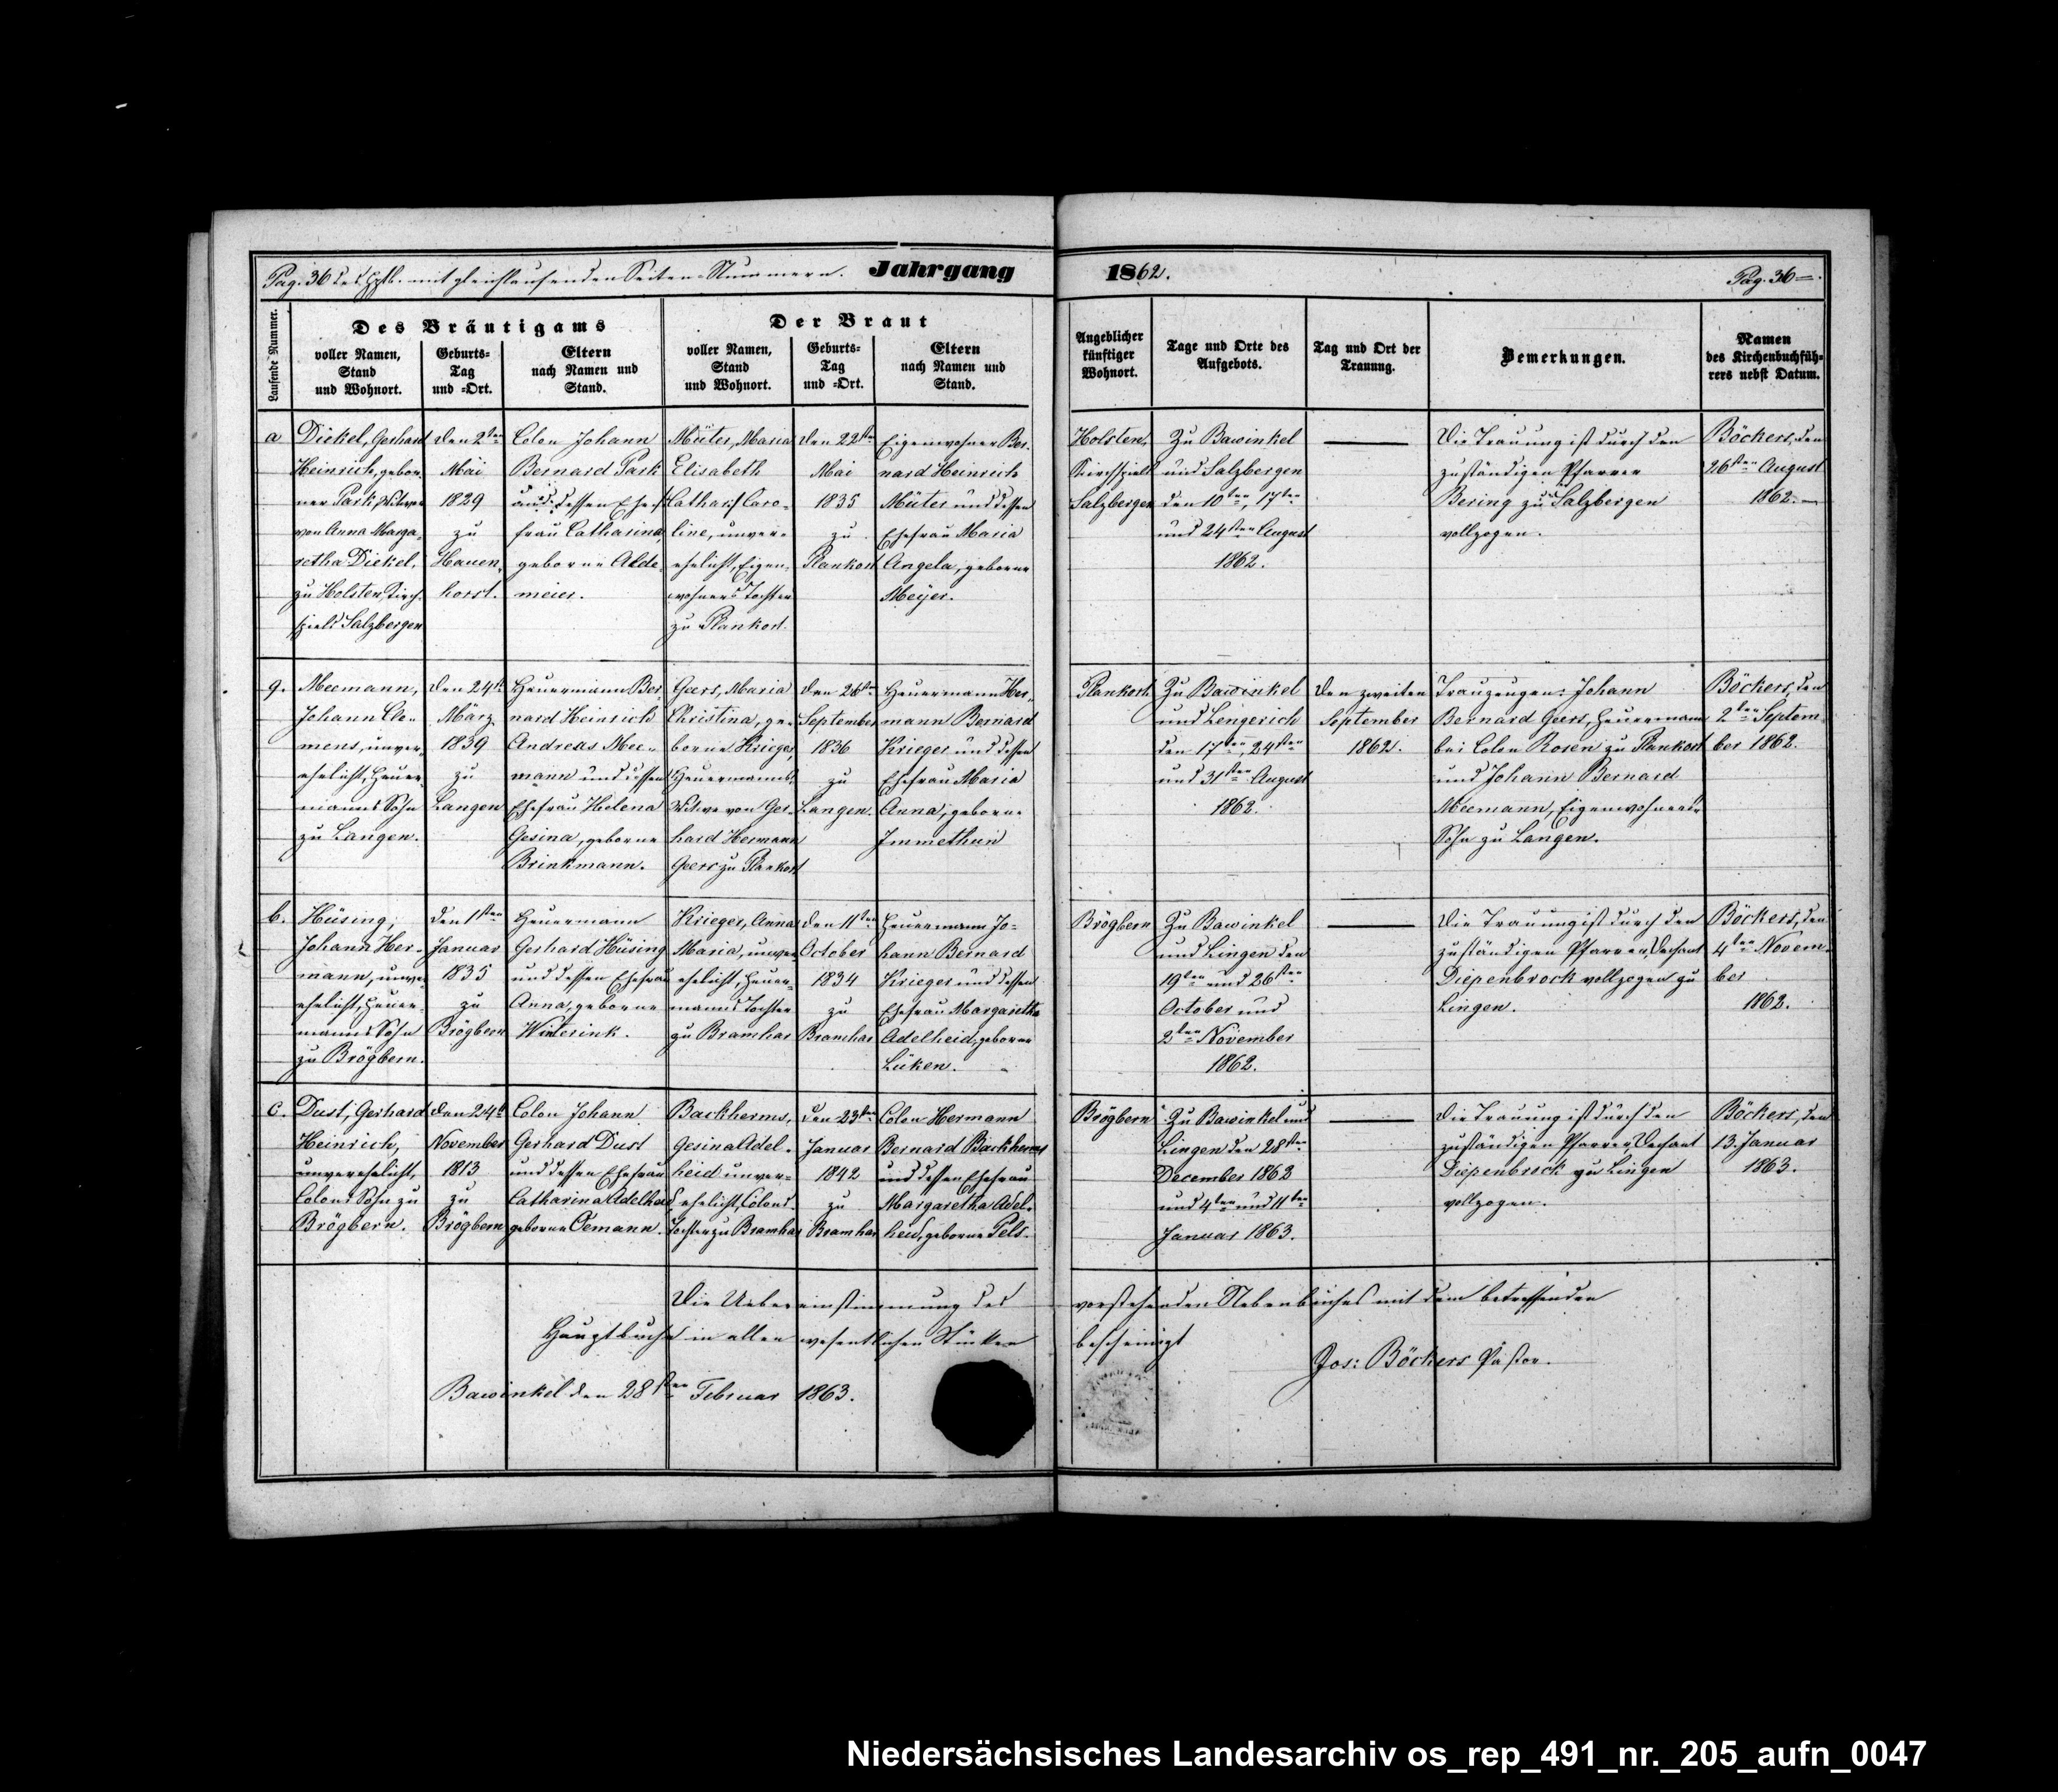 Pag. 36 des Hptb. mit gleichlaufenden Seiten-Nummern.
Jahrgang 1862.
Pag. 36
Laufende Nummer.
Des Bräutigams
voller Namen,
Stand
und Wohnort.
Geburts-
Tag
und -Ort.
Eltern
nach Namen und
Stand.
Der Braut
voller Namen,
Stand
und Wohnort.
Geburts-
Tag
und -Ort.
Eltern
nach Namen und
Stand.
Angeblicher
künftiger
Wohnort.
Tage und Orte des
Aufgebots.
Tag und Ort der
Trauung.
Bemerkungen.
Namen
des Kirchenbuchfüh-
rers nebst Datum.
a
Diekel, Gerhard
Heinrich, gebor-
ner Park, Witwer
von Anna Marga-
retha Diekel,
zu Holsten, Kirch-
spiels Salzbergen
den 2ten
Mai
1829
zu
Hauen-
horst.
Colon Johann
Bernard Park
und dessen Ehe-
frau Catharina,
geborne Alde-
meier.
Müter, Maria
Elisabeth
Cathar. Caro-
line, unver-
ehelicht, Eigen-
wohners Tochter
zu Plankort.
den 22sten
Mai
1835
zu
Plankort
Eigenwohner Ber-
nard Heinrich
Müter und dessen
Ehefrau Maria
Angela, geborne
Meyer.
Holsten,
Kirchspiels
Salzbergen
Zu Bawinkel
und Salzbergen
den 10ten, 17ten
und 24sten August
1862.
Die Trauung ist durch den
zuständigen Pfarrer
Bering zu Salzbergen
vollzogen.
Böckers, den
26sten August
1862.
9.
Meemann,
Johann Cle-
mens, unver-
ehelicht, Heuer-
manns Sohn
zu Langen.
den 24st
März
1839
zu
Langen
Heuermann Ber-
nard Heinrich
Andreas Mee-
mann und dessen
Ehefrau Helena
Gesina, geborne
Brinkmann.
Geers, Maria
Christina, ge-
borne Krieger,
Heuermanns
Witwe von Ger-
hard Hermann
Geers zu Plankort
den 26sten
September
1836
zu
Langen.
Heuermann Her-
mann Bernard
Krieger und dessen
Ehefrau Maria
Anna, geborne
Immethun
Plankort.
Zu Bawinkel
und Lengerich
den 17ten, 24sten
und 31sten August
1862.
den zweiten
September
1862.
Trauzeugen: Johann
Bernard Geers, Heuermann
bei Colon Rosen zu Plankort
und Johann Bernard
Meemann, Eigenwohners
Sohn zu Langen.
Böckers, den
2ten Septem-
ber 1862.
b.
Hüsing,
Johann Her-
mann, unver-
ehelicht, Heuer-
manns Sohn
zu Brögbern.
den 1sten
Januar
1835
zu
Brögbern
Heuermann
Gerhard Hüsing
und dessen Ehefrau
Anna, geborne
Winterink.
Krieger, Anna
Maria, unver-
ehelicht, Heuer-
manns Tochter
zu Bramhar
den 11ten
October
1834
zu
Bramhar
Heuermann Jo-
hann Bernard
Krieger und dessen
Ehefrau Margaretha
Adelheid, geborne
Lüken.
Brögbern
Zu Bawinkel
und Lingen den
19ten und 26sten
October und
2ten November
1862.
Die Trauung ist durch den
zuständigen Pfarrer, Dechant
Diepenbrock vollzogen zu
Lingen.
Böckers, den
4ten Novem-
ber
1862.
c.
Dust, Gerhard
Heinrich,
unverehelicht,
Colons Sohn zu
Brögbern.
den 24st
November
1813
zu
Brögbern
Colon Johann
Gerhard Dust
und dessen Ehefrau
Catharina Adelheid
geborne Oemann.
Backherms,
Gesina Adel-
heid unver-
ehelicht, Colons
Tochter zu Bramhar
den 23sten
Januar
1842
zu
Bramhar
Colon Hermann
Bernard Backherms
und dessen Ehefrau
Margaretha Adel-
heid, geborne Pels.
Brögbern
Zu Bawinkel und
Lingen den 28sten
December 1863
und 4ten und 11ten
Januar 1863.
Die Trauung ist durch den
zuständigen Pfarrer, Dechant
Diepenbrock zu Lingen
vollzogen.
Böckers, den
13. Januar
1863.
Die Uebereinstimmung des vorstehenden Nebenbuches mit dem betreffenden
Hauptbuche in allen wesentlichen Stücken bescheinigt
Jos: Böckers Pastor.
Bawinkel den 28sten Februar 1863.
Niedersächsisches Landesarchiv os_rep_491_nr._205_aufn_0047